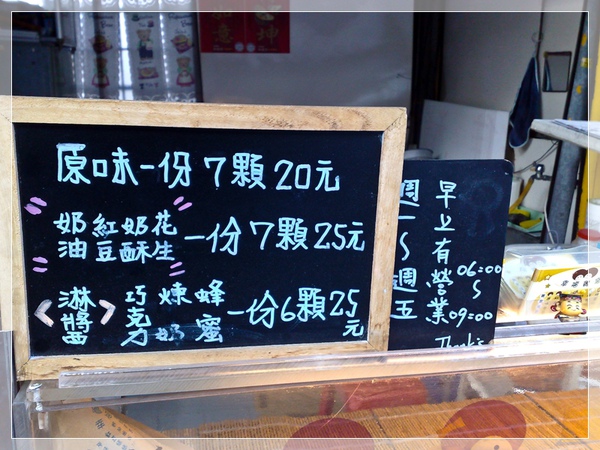 原味一份7顆20元
奶油 紅豆 奶酥 花生 一份7顆25元
<淋醬> 巧克力 煉奶 蜂蜜 一份6顆25元
週一~週五
早上有營業
06:00
~
09:00
Thank's
如意